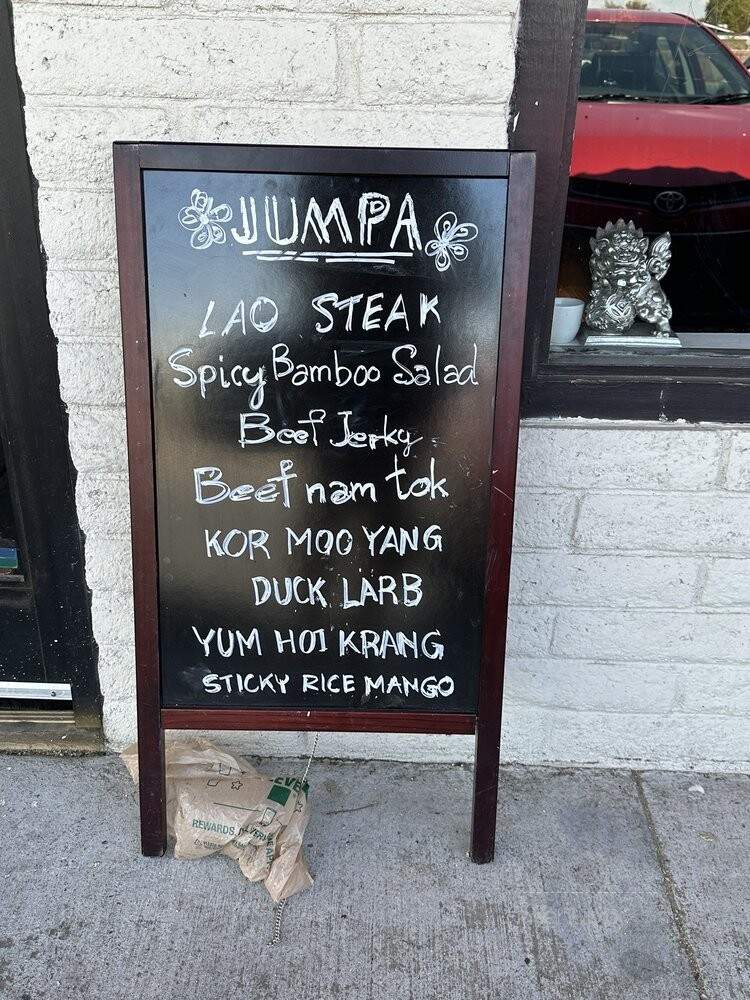 JUMPA
LAO STEAK
Spicy Bamboo Salad
Beef Jerky
Beef nam tok
KOR MOO YANG
DUCK LARB
YUM HOI KRANG
STICKY RICE MANGO
REWARDS